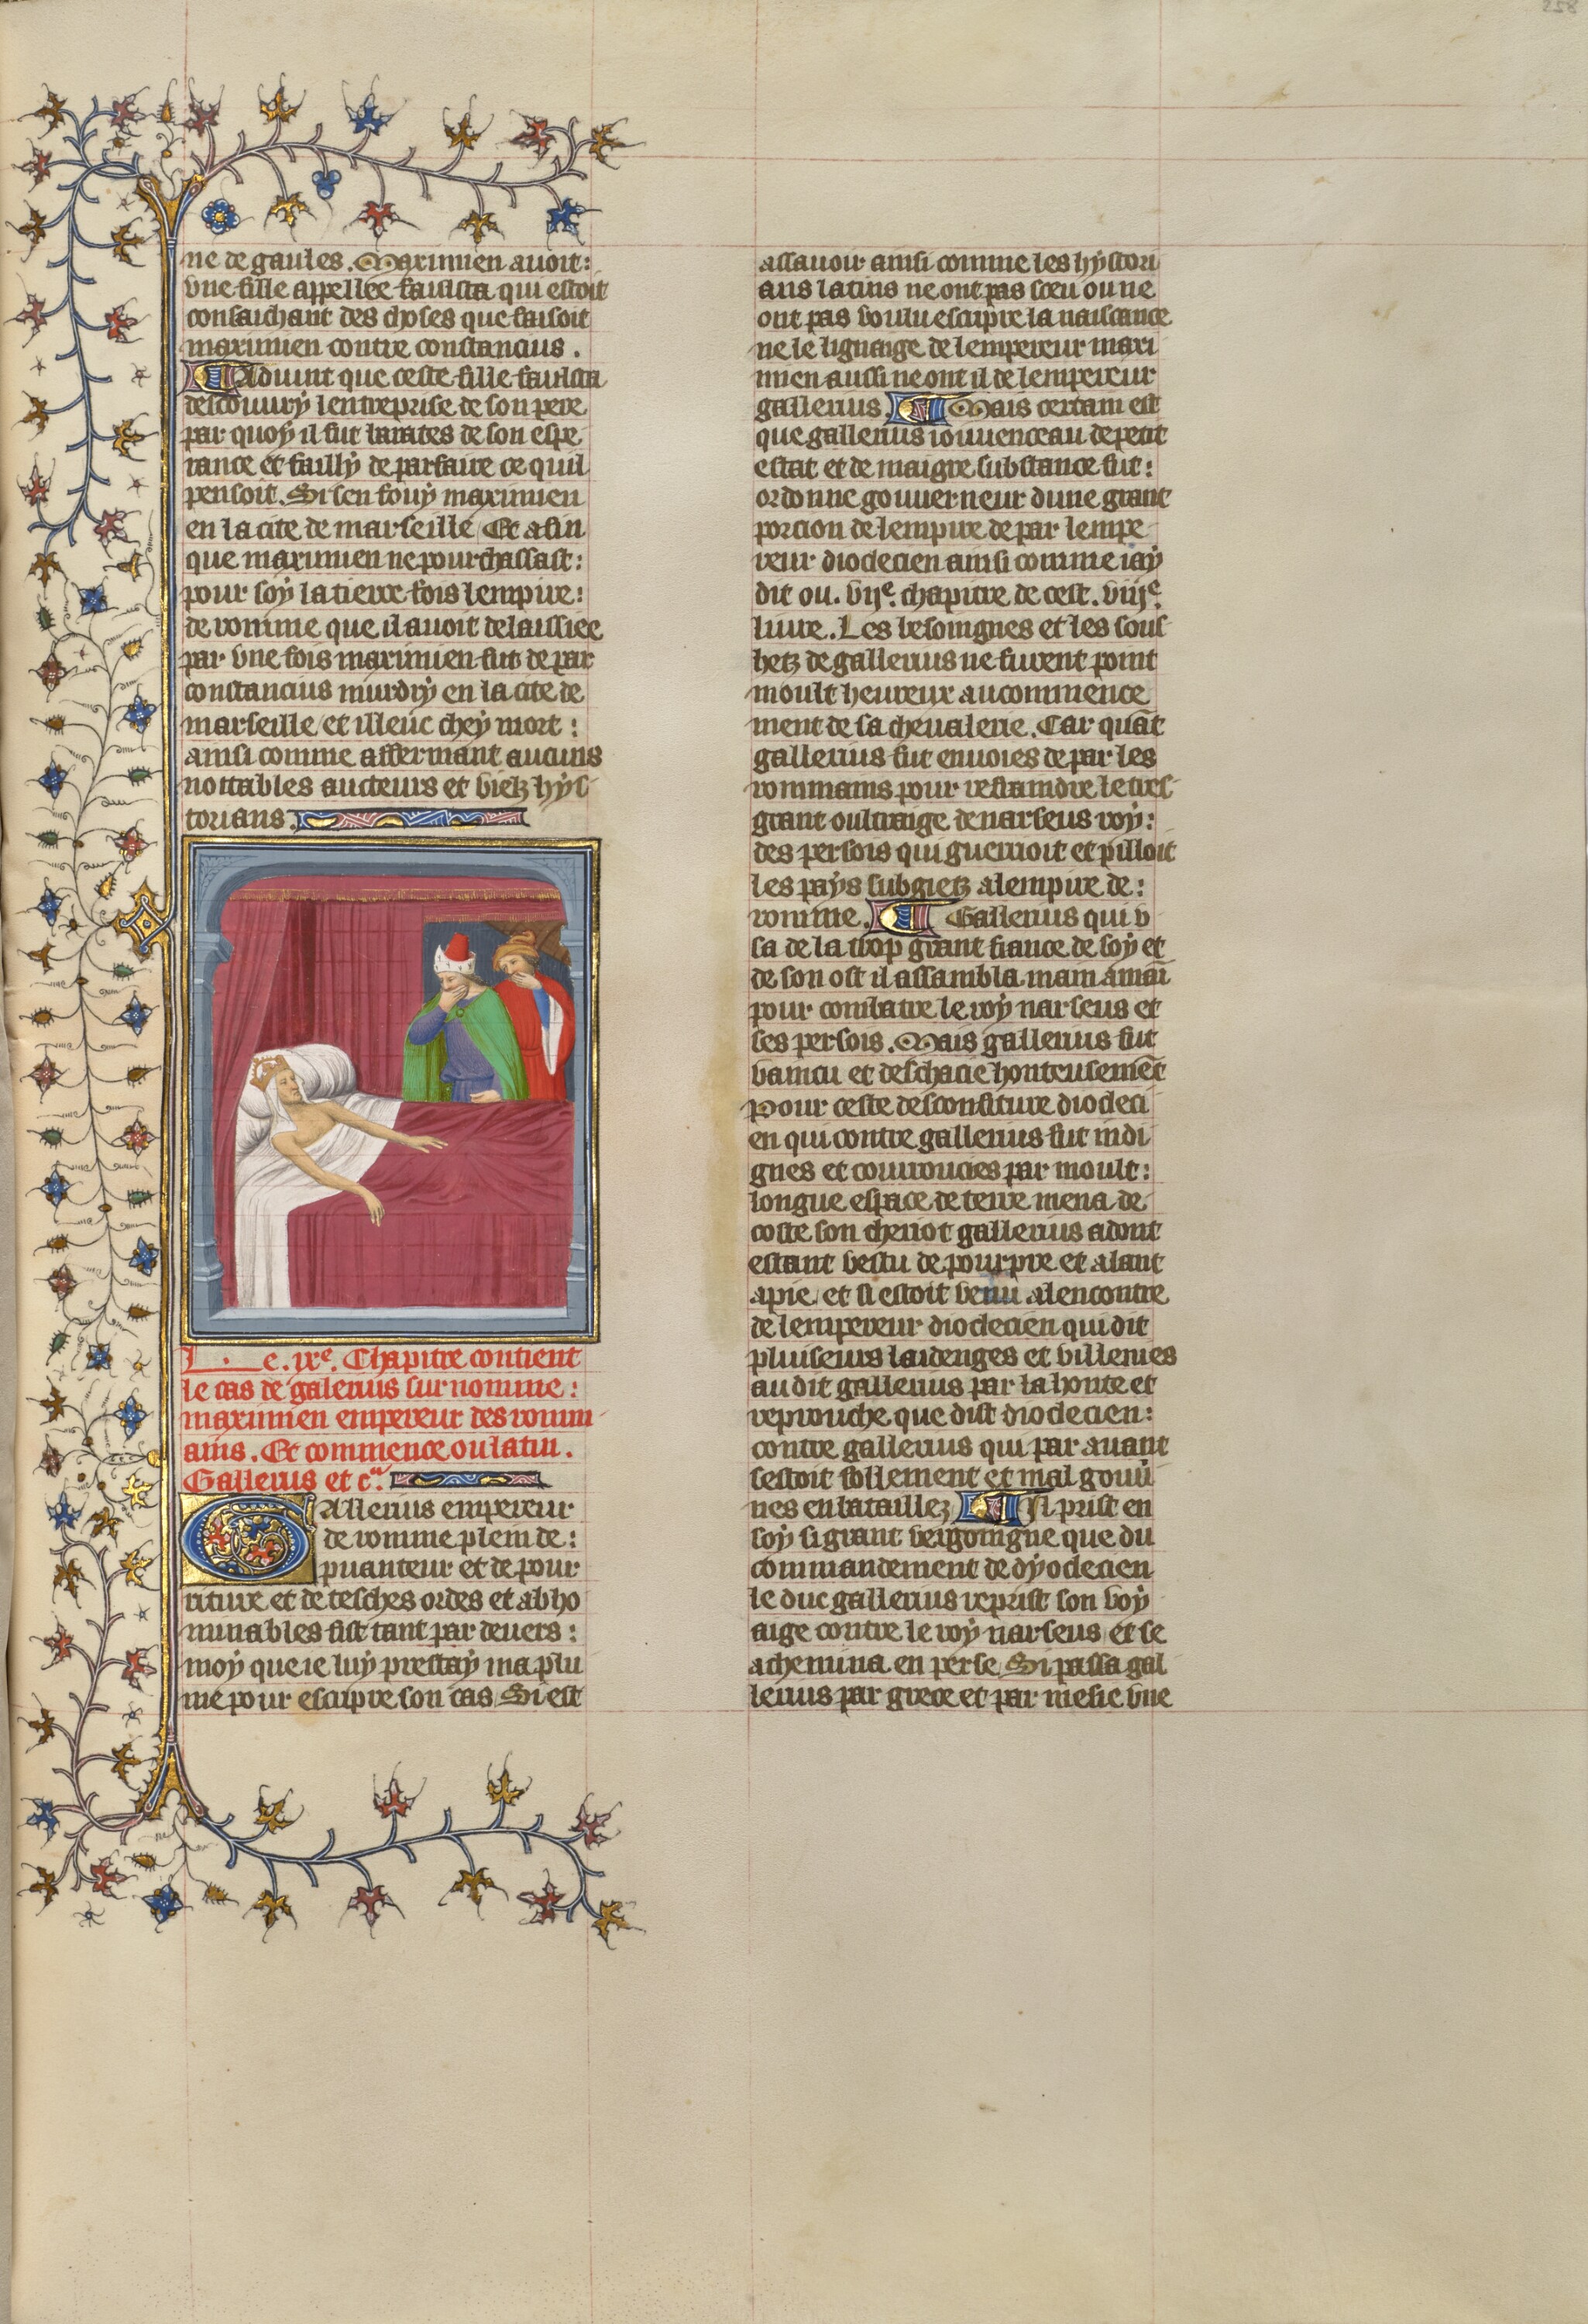 258
ne de gaules. Maximien auoit:
vne fille appellee faulsta qui estoit
consaichant des choses que faisoit
maximien contre constancius.
Aduint que ceste fille faulsta
descouury lentreprise de son pere
par quoy il fut baratés de son espe
rance et failly de parfaire ce quil
pensoit. Si sen fouy maximien
en la cite de marseille Et afin
que maximien ne pourchassast:
pour soy la tierce fois lempire:
de romme que il auoit delaissiee
par vne fois maximien fut de par
constancius murdry en la cite de
marseille et illeuc chey mort:
ainsi comme afferment aucuns
nottables aucteurs et vielz hys
torians.
Le .ixe. Chapitre contient
le cas de galerius surnomme:
maximien empereur des romm
ains. Et commence ou latin.
Gallerius et ca.
Gallerius empereur
de romme plein de:
puanteur et de pour
riture et de tesches ordes et abho
minables fist tant par deuers:
moy que ie luy prestay ma plu
me pour escripre son cas Si est
assauoir ainsi comme les hystori
ans latins ne ont pas sceu ou ne
ont pas voulu escripre la naiscance
ne le lignaige de lempereur maxi
mien aussi ne ont il de lempereur
gallerius Mais certain est
que gallerius iouuenceau de petit
estat et de maigre substance fut:
ordonne gouuerneur dune grant
porcion de lempire de par lempe
reur dioclecien ainsi comme iay
dit ou .viie. chapitre de cest .viiie.
liure. Les besoingnes et les souf
hetz de gallerius ne furent point
moult heureux au commence
ment de sa cheualerie. Car quāt
gallerius fut enuoies de par les
rommains pour restraindre le tres
grant oultraige de narseus roy:
des persois qui guerrioit et pilloit
les pays subgietz a lempire de:
romme. Gallerius qui v
sa de la trop grant fiance de soy et
de son ost il assambla main a mai
pour combatre le roy narseus et
ses persois. Mais gallerius fut
vaincu et deschacie honteusemēt
Pour ceste desconfiture diocleci
en qui contre gallerius fut indi
gnes et courroucies par moult:
longue espace de terre mena de
coste son cheriot gallerius adont
estant vestu de pourpre et alant
a pie et si estoit venu alencontre
de lempereur dioclecien qui dit
pluiseurs laidenges et villenies
au dit gallerius par la honte et
reprouche que dist dioclecien:
contre gallerius qui par auant
sestoit follement et mal gouū
nes en bataillez Il prist en
soy si grant vergoingne que du
commandement de dyoclecien
le duc gallerius reprist son voy
aige contre le roy narseus et se
achemina en perse Si passa gal
lerius par grece et par mesie vne